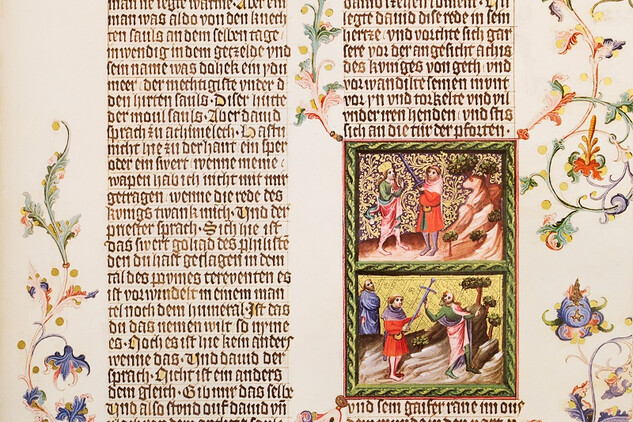 man was aldo von den knech
ten sauls an dem selben tage
inwendig in dem getzelde vnd
sein name was dohek ein ydu
meer, der mechtigiste vnder d
den hirten sauls. Diser hutte
der moul sauls. Aber dauid
sprach zu achimelech. Hastu
nicht hie zu der hant ein sper
oder ein swert, wenne meine
wapen hab ich nicht mit mir
getragen, wenne die rede des
konigs twank mich. Vnd der
priester sprach. Sich hie ist
das swert golias des philisten
den du hast geslagen in dem
tal des tereuenten es
ist vorwindelt in einem man
tel noch dem humeral. Ist das
du das nemen wilt so nyme
es. Noch es ist hie kein anders
wenne das. Vnd dauid der
sprach. Nicht ist ein anders
dem gleich. Gib mir das selbe
Vnd also stond ouf dauid vn
legte dauid dise rede in sein
hertze, vnd vorchte sich gar
sere vor der angesicht achis
des kuniges von geth. vnd
vor wandilte seinen munt
vor yn vnd torkelte vnd vil
vnder iren henden, vnd stis
sich an die tür der pforten.
vnd sein gaifer rane im ous